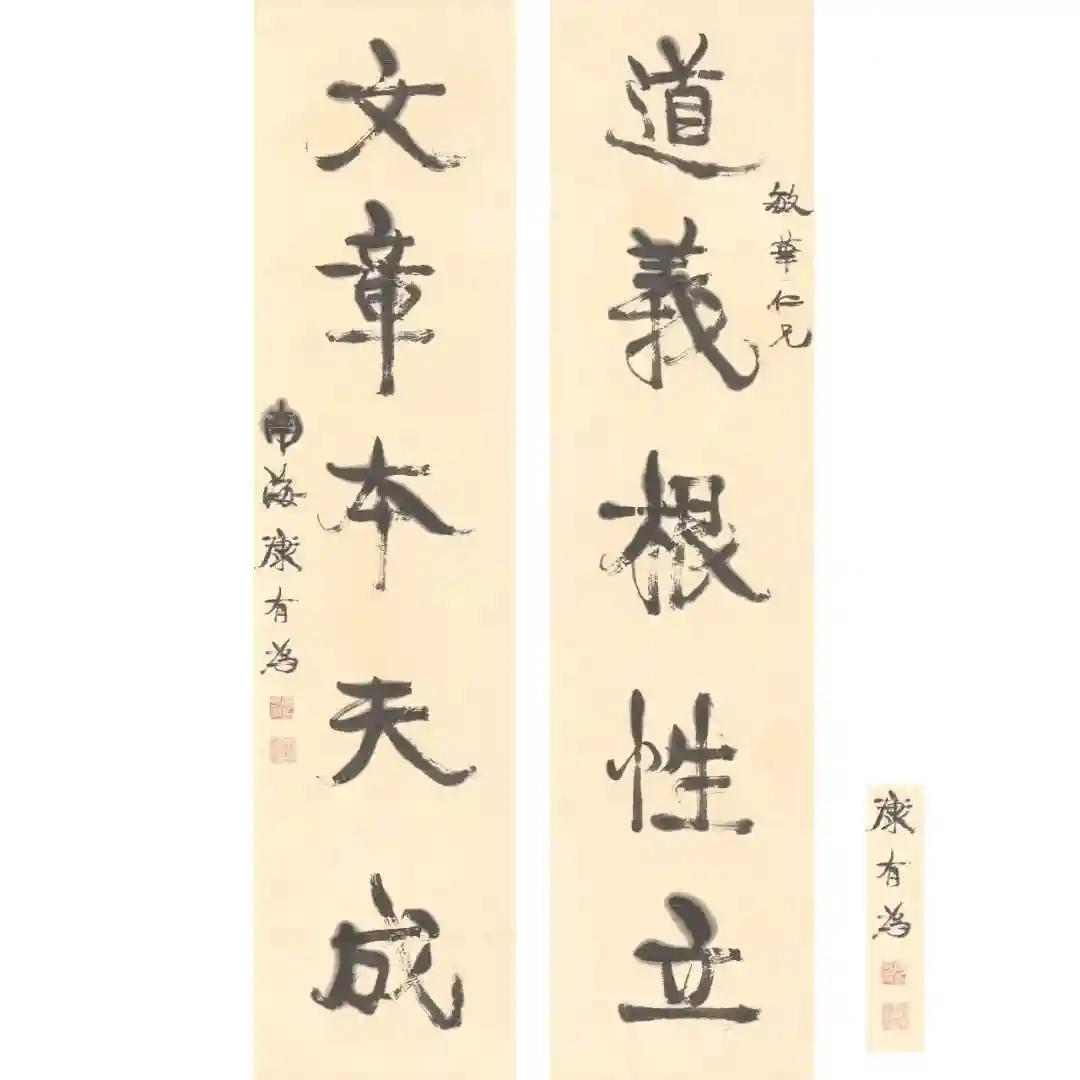 道義根性立
敏華仁兄
文章本夫成
南海康有為
康有為